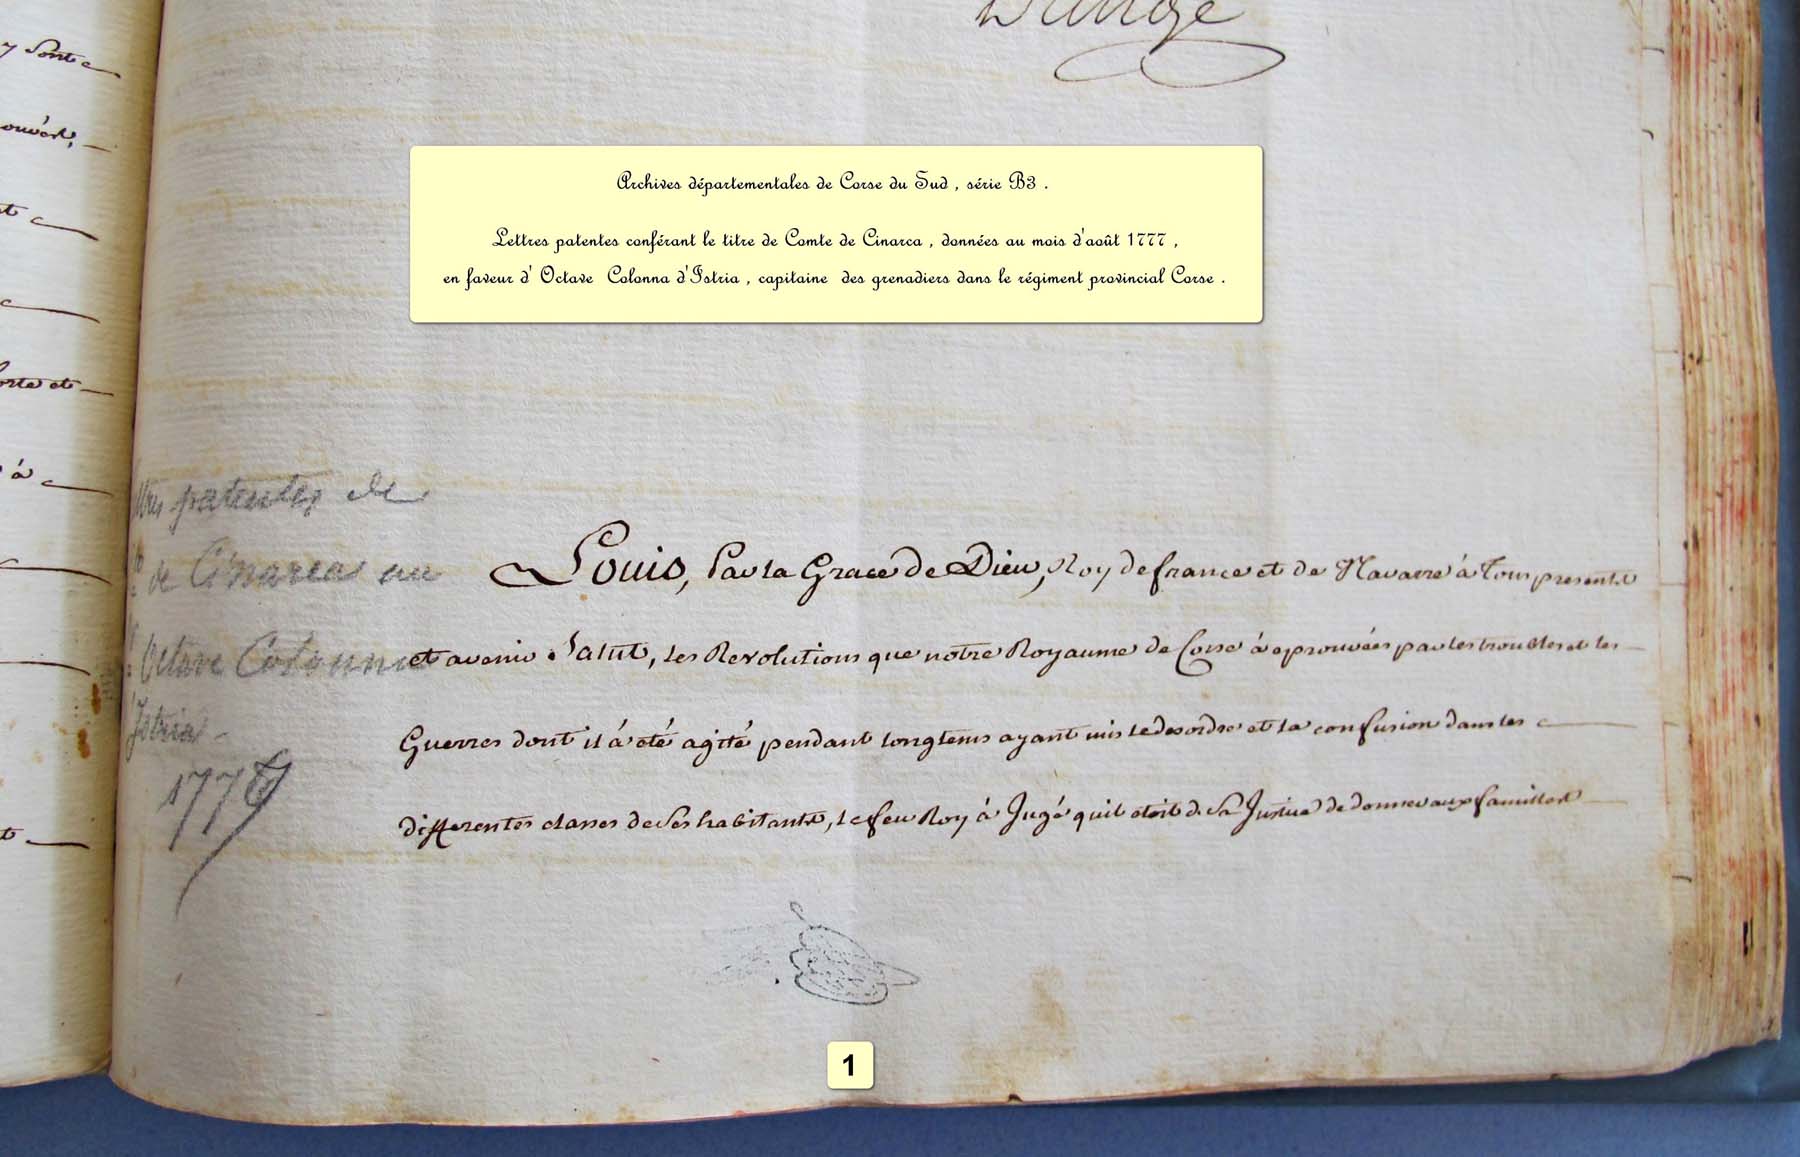 y sont
Archives départementales de Corse du Sud , série B3 .
Lettres patentes conférant le titre de Comte de Cinarca , données au mois d'août 1777 ,
en faveur d' Octave Colonna d'Istria , capitaine des grenadiers dans le régiment provincial Corse .
patentes de
de Cinarca au
Octave Colonna
Istria
177
Louis, Par la Grace de Dieu, Roy de france et de Navarre à tous presents
et avenir Salut, les Revolutions que notre Royaume de Corse à eprouvées par les troubles et les
Guerres dont il à été agité pendant longtems ayant mis le desordre et la confusion dans les
differentes classes de ses habitants, le feu Roy à Jugé quil etoit de Sa Justice de donner aux familles
1